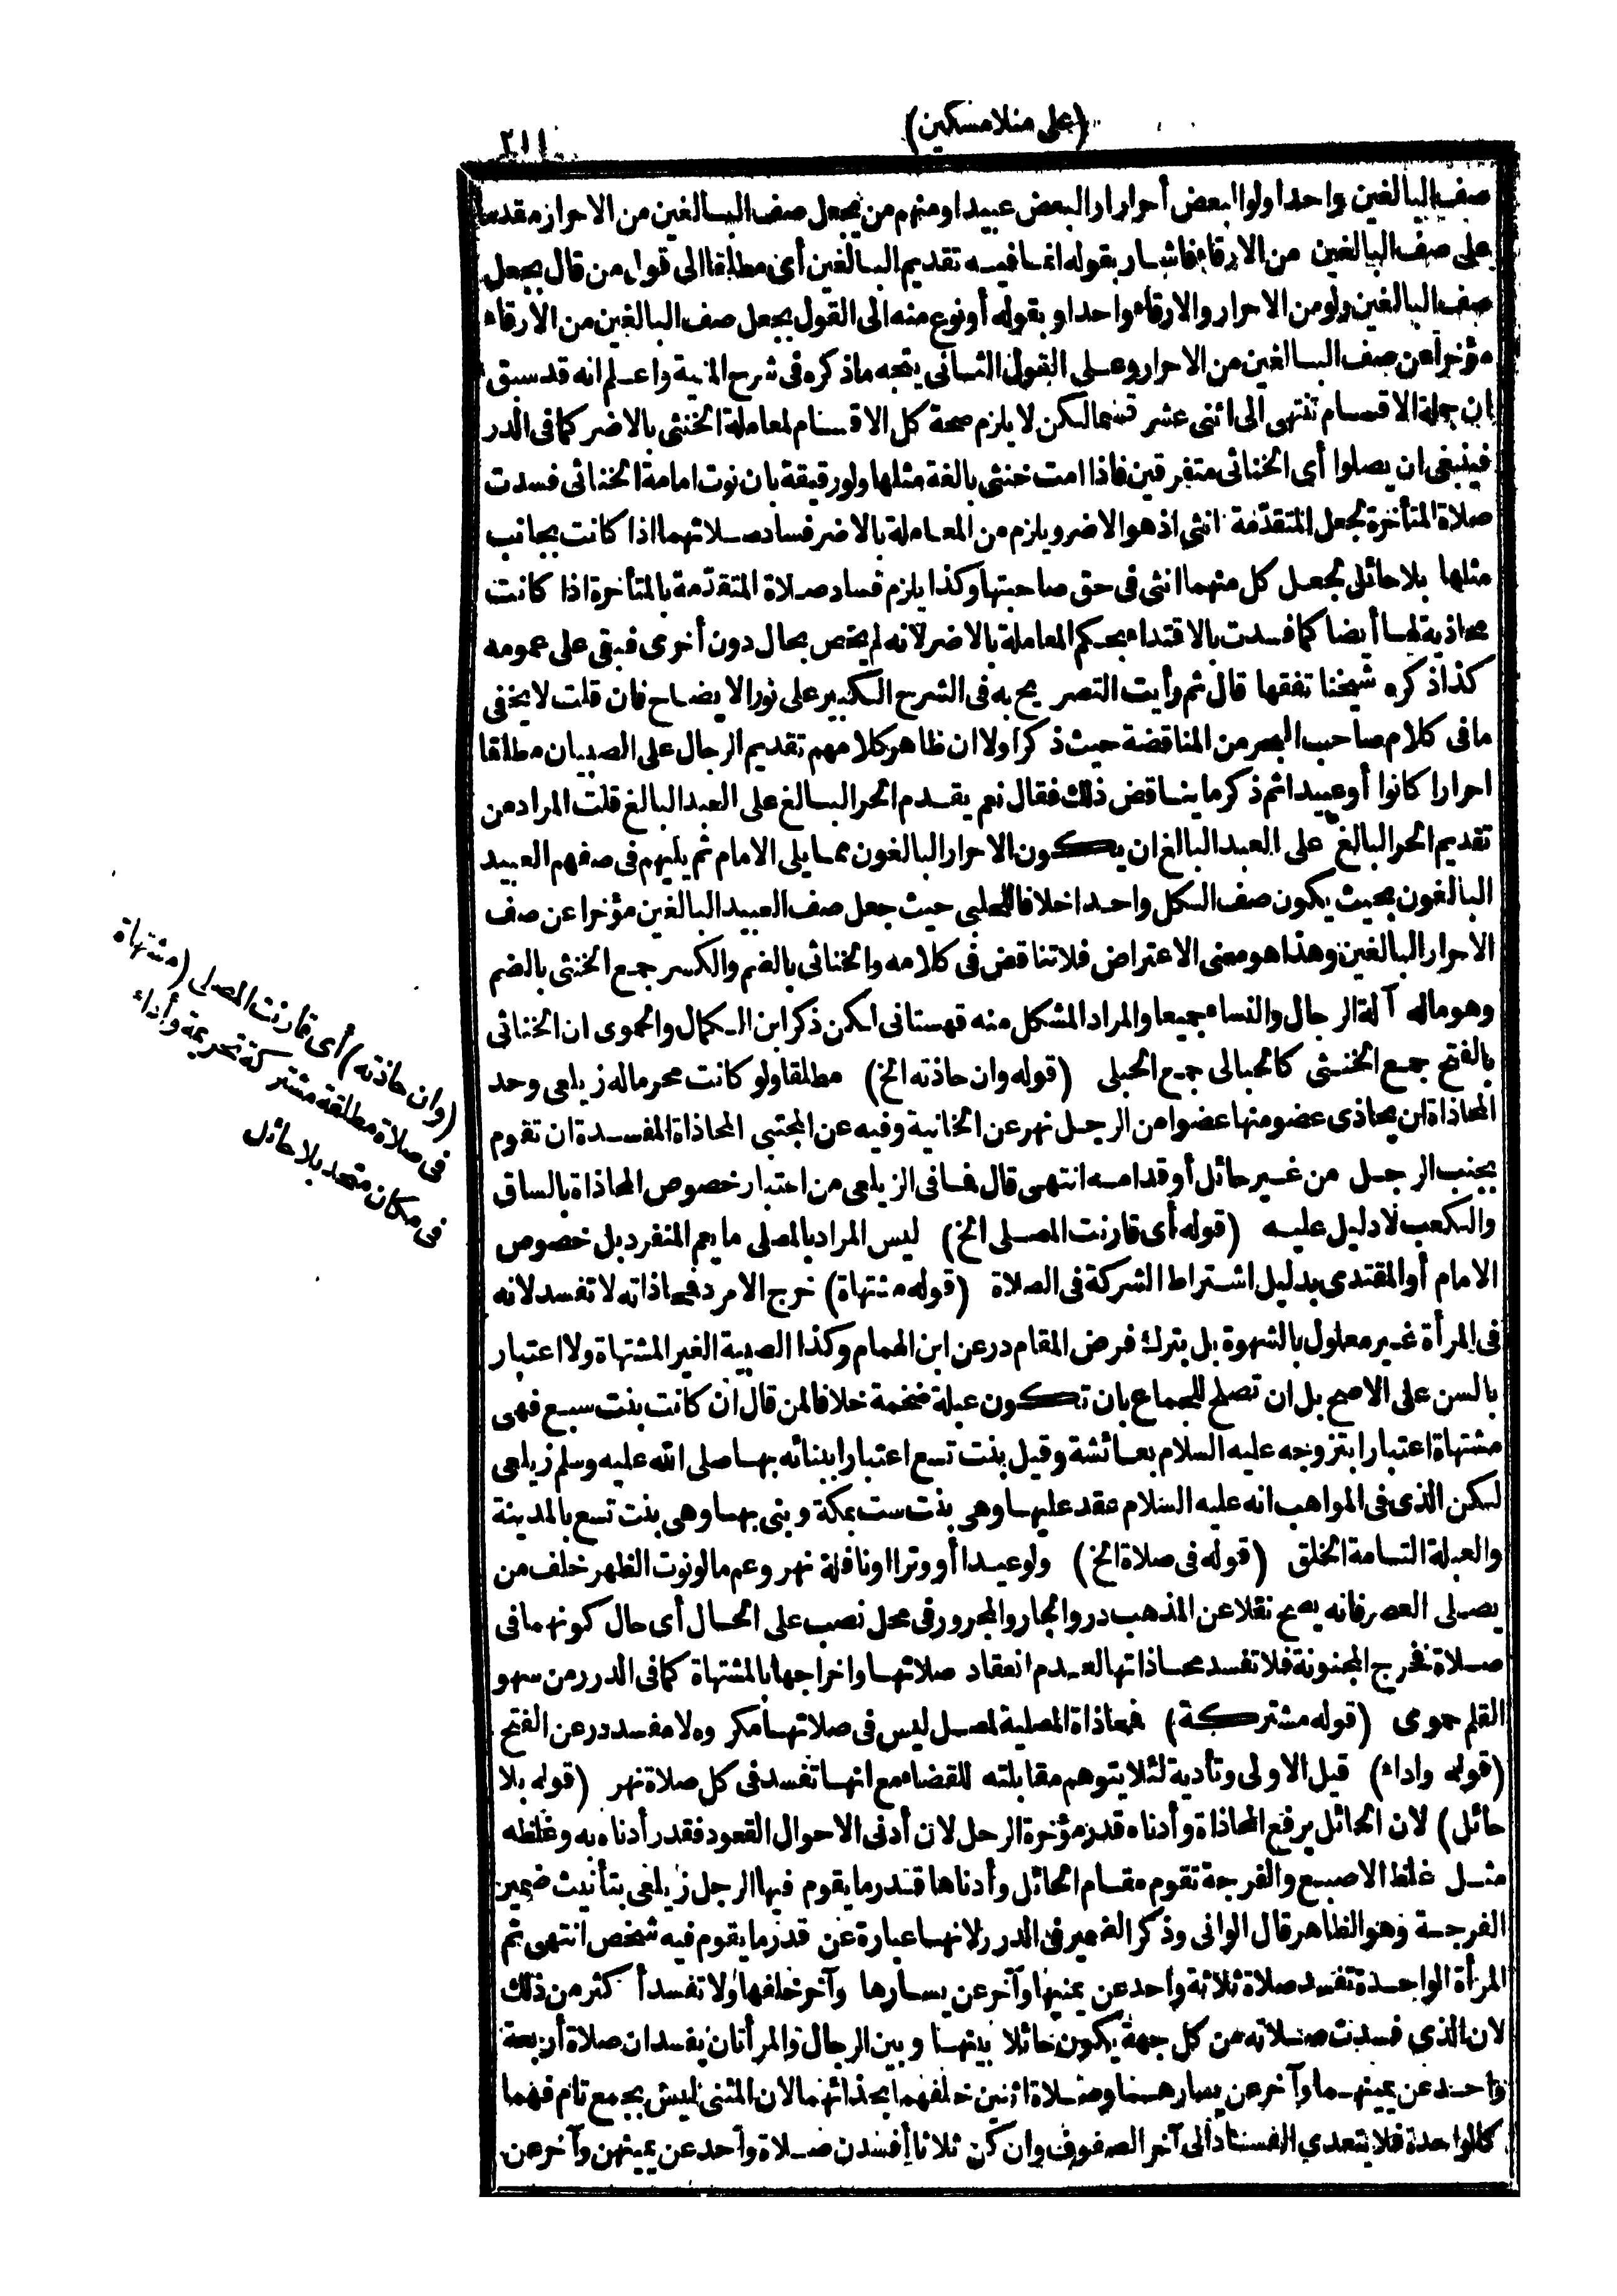 (على منلا مسكين)
٢١١
صف البالغين واحدا ولو البعض أحرارا والبعض عبيدا ومنهم من يجعل صف البالغين من الاحرار مقدما
على صف البالغين من الارقاء فاشار بقوله انما فيه تقديم البالغين أى مطلقا الى قول من قال بجعل
صف البالغين ولو من الاحرار والارقاء واحدا و بقوله أو نوع منه الى القول بجعل صف البالغين من الارقاء
مؤخرا عن صف البالغين من الاحرار وعلى القول الثانى يتجه ما ذكره فى شرح المنية واعلم انه قد سبق
ان جملة الاقسام تنتهى الى اثنى عشر قسما لكن لا يلزم صحة كل الاقسام لمعاملة الخنثى بالاضر كما فى الدر
فينبغى ان يصلوا أى الخناثى متفرقين فاذا امت خنثى بالغة مثلها ولو رقيقة بان نوت امامة الخناثى فسدت
صلاة المتأخرة لجعل المتقدمة انثى اذ هو الاضر ويلزم من المعاملة بالاضر فساد صلاتهما اذا كانت بجانب
مثلها بلا حائل لجعل كل منهما انثى فى حق صاحبتها وكذا يلزم فساد صلاة المتقدمة بالمتأخرة اذا كانت
محاذية لها أيضا كما فسدت بالاقتداء بحكم المعاملة بالاضر لانه لم يختص بحال دون أخرى فبقى على عمومه
كذا ذكره شيخنا تفقها قال ثم رأيت التصريح به فى الشرح الكبير على نور الايضاح فان قلت لا يخفى
ما فى كلام صاحب البحر من المناقضة حيث ذكر اولا ان ظاهر كلامهم تقديم الرجال على الصبيان مطلقا
احرارا كانوا أو عبيدا ثم ذكر ما يناقض ذلك فقال نعم يقدم الحر البالغ على العبد البالغ قلت المراد من
تقديم الحر البالغ على العبد البالغ ان يكون الاحرار البالغون مما يلى الامام ثم يليهم فى صفهم العبيد
البالغون بحيث يكون صف الكل واحدا خلافا للحلبى حيث جعل صف العبيد البالغين مؤخرا عن صف
الاحرار البالغين وهذا هو معنى الاعتراض فلا تناقض فى كلامه والخناثى بالضم والكسر جمع الخنثى بالضم
وهو ماله آلة الرجال والنساء جميعا والمراد المشكل منه قهستانى لكن ذكر ابن الكمال والحموى ان الخناثى
بالفتح جمع الخنثى كالحبالى جمع الحبلى (قوله وان حاذته الخ) مطلقا ولو كانت محرما له زيلعى وحد
المحاذاة ان يحاذى عضو منها عضوا من الرجل نهر عن الخانية وفيه عن المجتبى المحاذاة المفسدة ان تقوم
بجنب الرجل من غير حائل أو قدامه انتهى قال فما فى الزيلعى من اعتبار خصوص المحاذاة بالساق
والكعب لا دليل عليه (قوله أى قارنت المصلى الخ) ليس المراد بالمصلى ما يعم المنفرد بل خصوص
الامام أو المقتدى بدليل اشتراط الشركة فى الصلاة (قوله مشتهاة) خرج الامرد فمحاذاته لا تفسد لانه
فى المرأة غير معلول بالشهوة بل بترك فرض المقام در عن ابن الهمام وكذا الصبية الغير المشتهاة ولا اعتبار
بالسن على الاصح بل ان تصلح للجماع بان تكون عبلة ضخمة خلافا لمن قال ان كانت بنت سبع فهى
مشتهاة اعتبارا بتزوجه عليه السلام بعائشة وقيل بنت تسع اعتبارا ببنائه بها صلى الله عليه وسلم زيلعى
لكن الذى فى المواهب انه عليه السلام عقد عليها وهى بنت ست بمكة وبنى بها وهى بنت تسع بالمدينة
والعبلة التامة الخلق (قوله فى صلاة الخ) ولو عيدا أو وترا او نافلة نهر وعم ما لو نوت الظهر خلف من
يصلى العصر فانه يصح نقلا عن المذهب در والجار والمجرور فى محل نصب على الحال أى حال كونهما فى
صلاة فخرج المجنونة فلا تفسد محاذاتها لعدم انعقاد صلاتها واخراجها بالمشتهاة كما فى الدرر من سهو
القلم حموى (قوله مشتركة) فمحاذاة المصلية لمصل ليس فى صلاتها مكروه لا مفسد در عن الفتح
(قوله واداء) قيل الاولى وتأدية لئلا يتوهم مقابلته للقضاء مع انها تفسد فى كل صلاة نهر (قوله بلا
حائل) لان الحائل يرفع المحاذاة وأدناه قدر مؤخرة الرحل لان أدنى الاحوال القعود فقدر أدناه به وغلظه
مثل غلظ الاصبع والفرجة تقوم مقام الحائل وأدناها قدر ما يقوم فيها الرجل زيلعى بتأنيث ضمير
الفرجة وهو الظاهر قال الوانى وذكر الضمير فى الدرر لانها عبارة عن قدر ما يقوم فيه شخص انتهى ثم
المرأة الواحدة تفسد صلاة ثلاثة واحد عن يمينها وآخر عن يسارها وآخر خلفها ولا تفسد أكثر من ذلك
لان الذى فسدت صلاته من كل جهة يكون حائلا بينها وبين الرجال والمرأتان يفسدان صلاة أربعة
واحد عن يمينهما وآخر عن يسارهما وصلاة اثنين خلفهما بحذائهما لان المثنى ليس بجمع تام فهما
كالواحدة فلا يتعدى الفساد الى آخر الصفوف وان كن ثلاثا أفسدن صلاة واحد عن يمينهن وآخر عن
(وان حاذته) أى قارنت المصلى (مشتهاة
فى صلاة مطلقة مشتركة تحريمة وأداء
فى مكان متحد بلا حائل